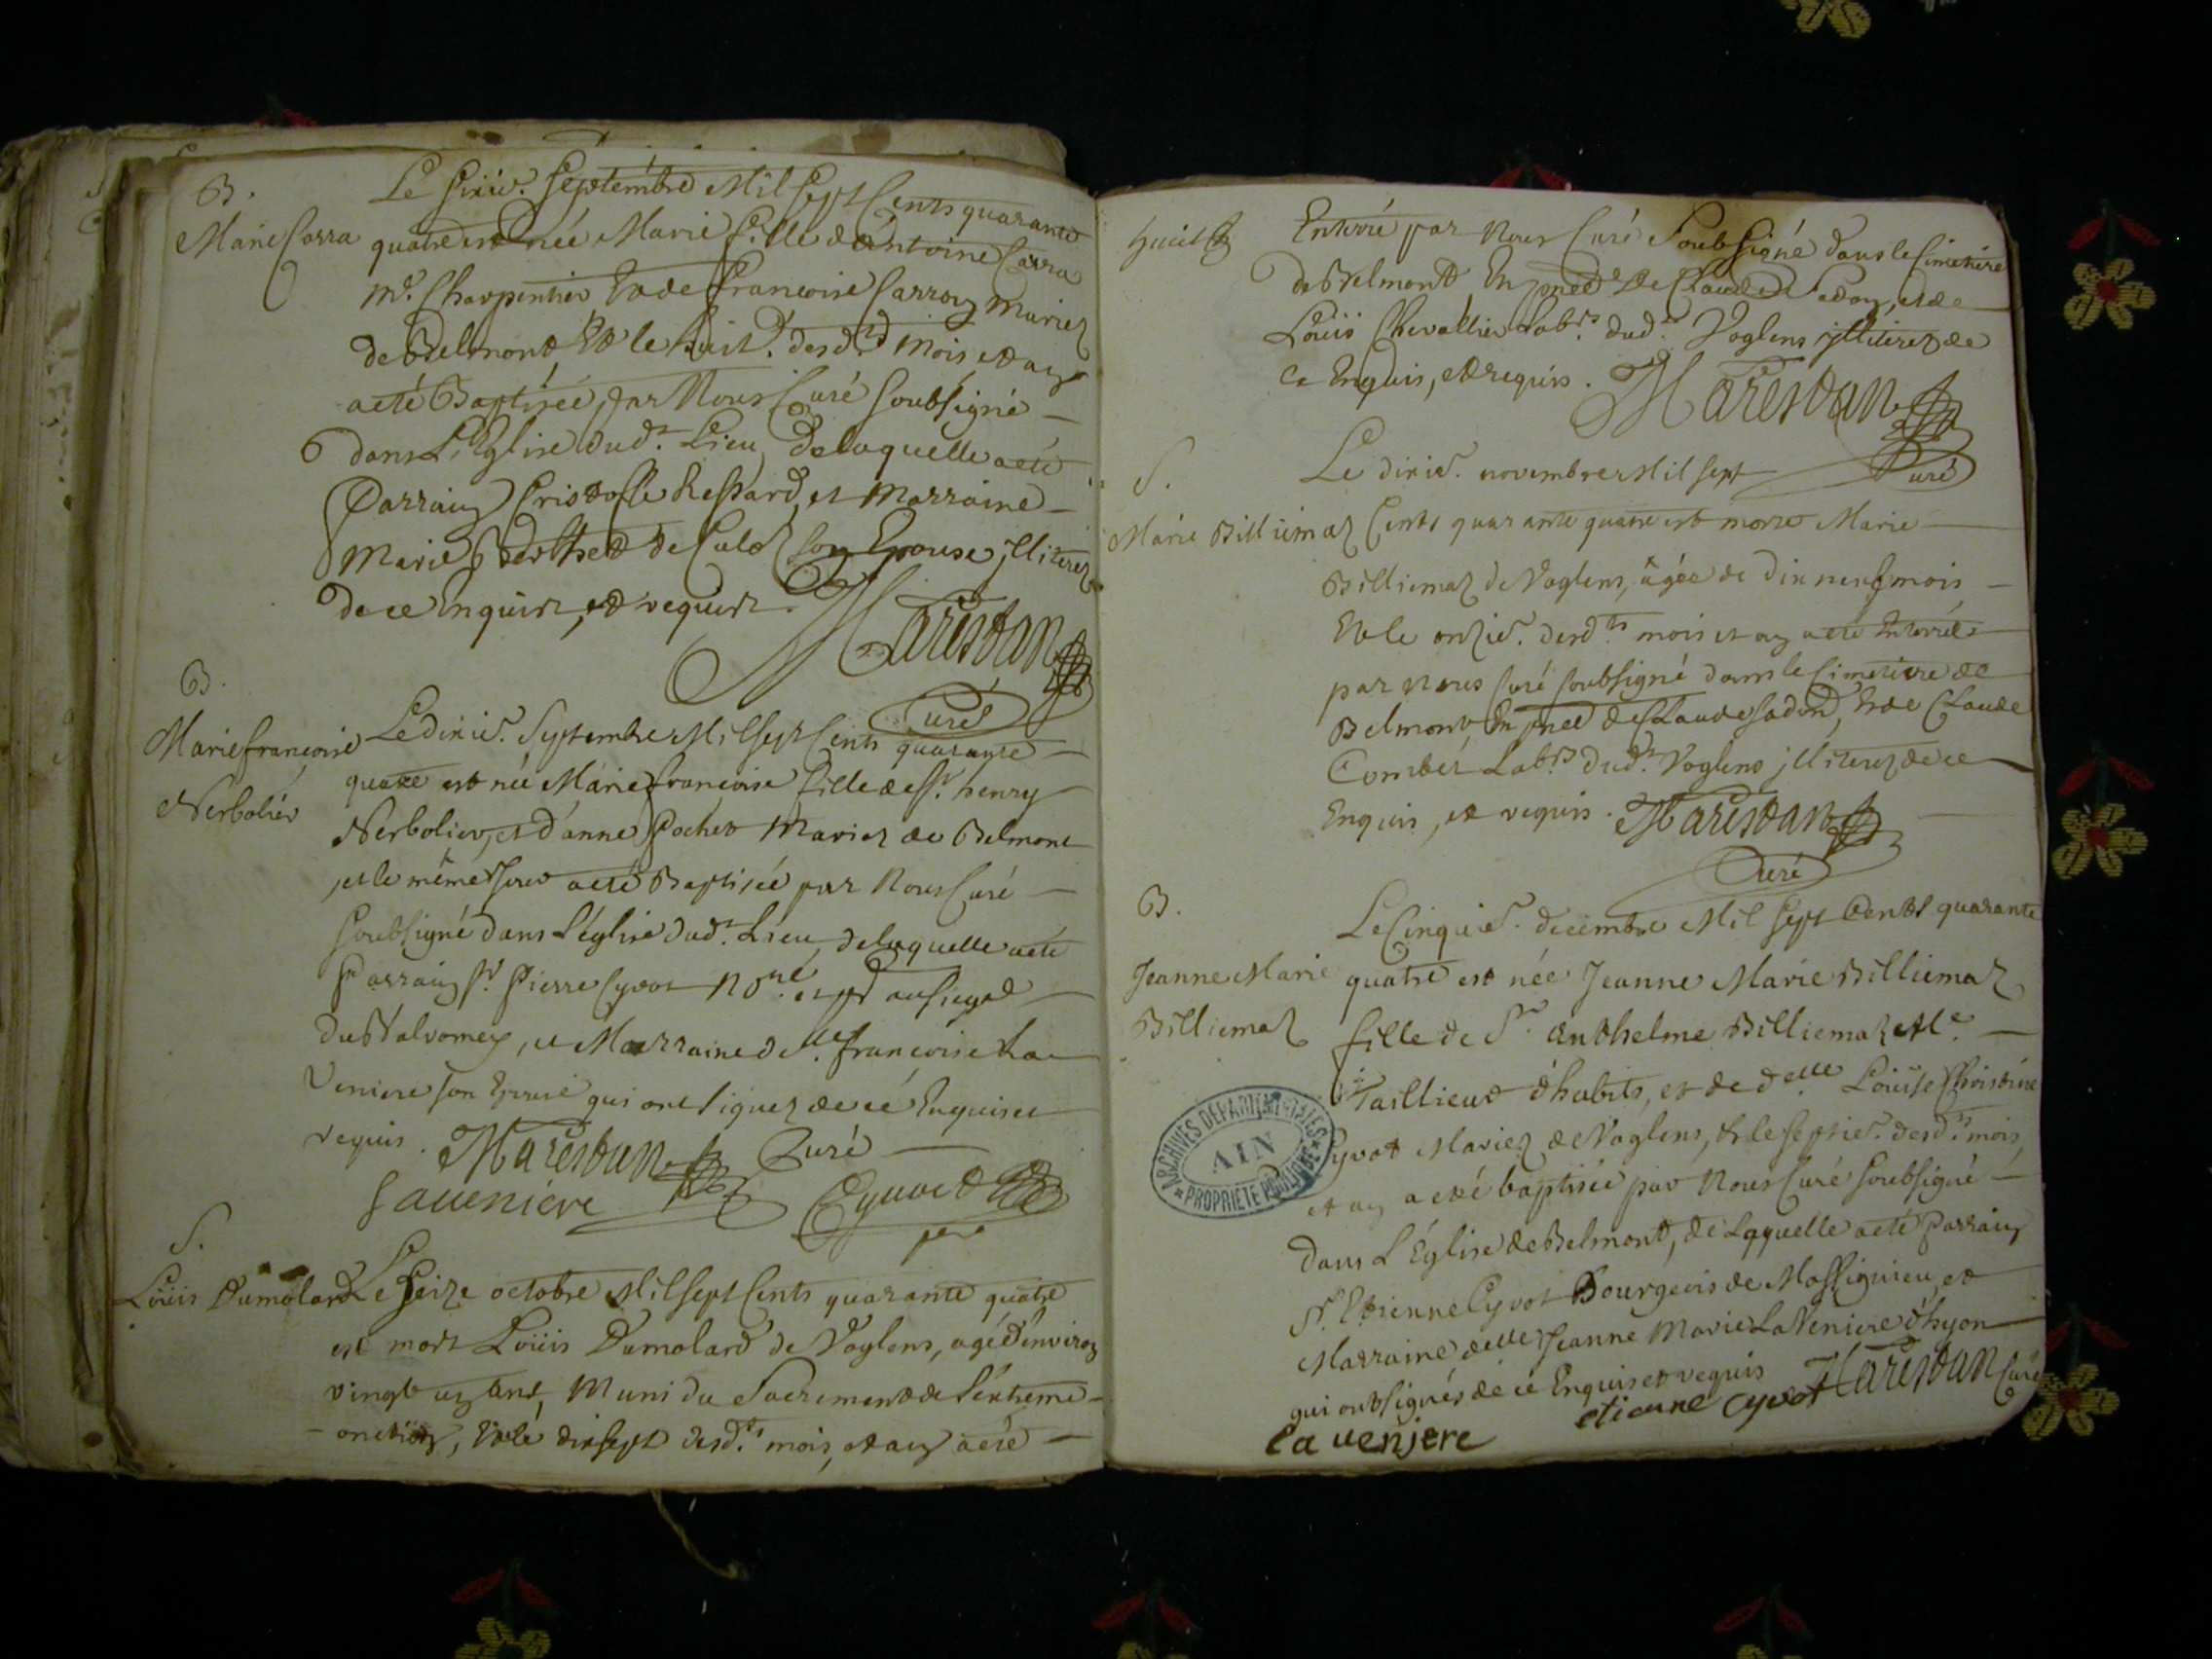 B.
Marie Carra
Le sixie. septembre Mil sept Cents quarante
quatre est née Marie fille d'Antoine Carra
Me. Charpentier Et de francoise Carron Mariez
de Belmont Et le huit. desd.ts mois et an
a eté Baptisée par Nous Curé soubsigné
dans L'Eglise dud.t Lieu, de laquelle a eté
Parrain Cristofle et Marraine
Marie Berthet de Culoz son Epouse illiterez
de ce Enquis, et requis. Marestan
Curé
B.
Marie francoise
Nerbolier
Le dixie. Septembre Mil sept Cents quarante
quatre est née Marie francoise fille de Sr. henry
Nerbolier, et d'anne Pochet Mariez de Belmont
et le même jour a eté Baptisée par Nous Curé
soubsigné dans l'église dud.t Lieu, de laquelle a eté
Parrain Sr. Pierre Cyvot au siege
du Valromey, et Marraine d.lle francoise La
Veniere son Epouse qui ont signez de ce Enquis et
requis. Marestan Curé
Laveniere Cyvot
pere
S.
Loüis Dumolard
Le seize octobre Mil sept Cents quarante quatre
est mort Loüis Dumolard de Voglens, agé d'environ
vingt un ans, Muni du Sacrement de l'extreme
onction, Et le dix sept desd.ts mois, et an a eté
Enterré par Nous Curé Soubsigné dans le Cimetiere
de Belmont En de Claude Sadon, et de
Loüis Chevallier Lab.rs dud.t Voglens illiterez de
ce Enquis, et requis. Marestan
Curé
S.
Marie Billiemaz
Le dixie. novembre Mil sept
Cents quarante quatre est morte Marie
Billiemaz de Voglens, âgée de dix neuf mois
Et le onzie. desd.ts mois et an a eté Enterrée
par Nous Curé soubsigné dans le Cimetiere de
Belmont, En de Claude Sadon, et de Claude
Combet Lab.rs dud.t Voglens illiterez de ce
Enquis, et requis. Marestan
Curé
B.
Jeanne Marie
Billiemaz
Le Cinquie. decembre Mil sept Cents quarante
quatre est née Jeanne Marie Billiemaz
fille de Sr. Anthelme Billiemaz Me.
Taillieur d'habits, et de d.elle Loüise Christine
Cyvot Mariez de Voglens, et le septie. desd.ts mois
et an a eté baptisée par Nous Curé soubsigné
dans L'Église de Belmont, de Laquelle a eté Parrain
Sr. Etienne Cyvot Bourgeois de Massignieu, et
Marraine delle Jeanne Marie La Veniere d'hyon
qui ont signés de ce Enquis et requis Marestan Curé
etienne Cyvot
la veniere
ARCHIVES DEPARTEMENTALES
AIN
PROPRIETE PUBLIQUE